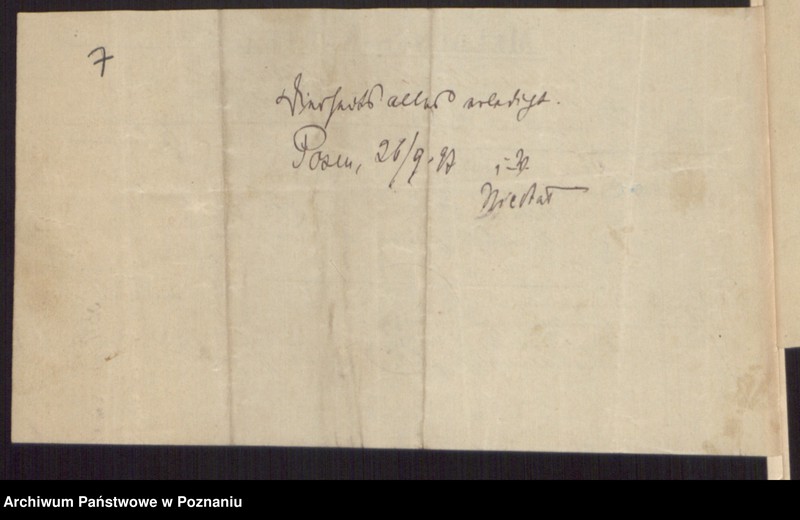 7
Dierseits alles erledigt.
Posen, 26/9. 97
i. V.
Archiwum Państwowe w Poznaniu